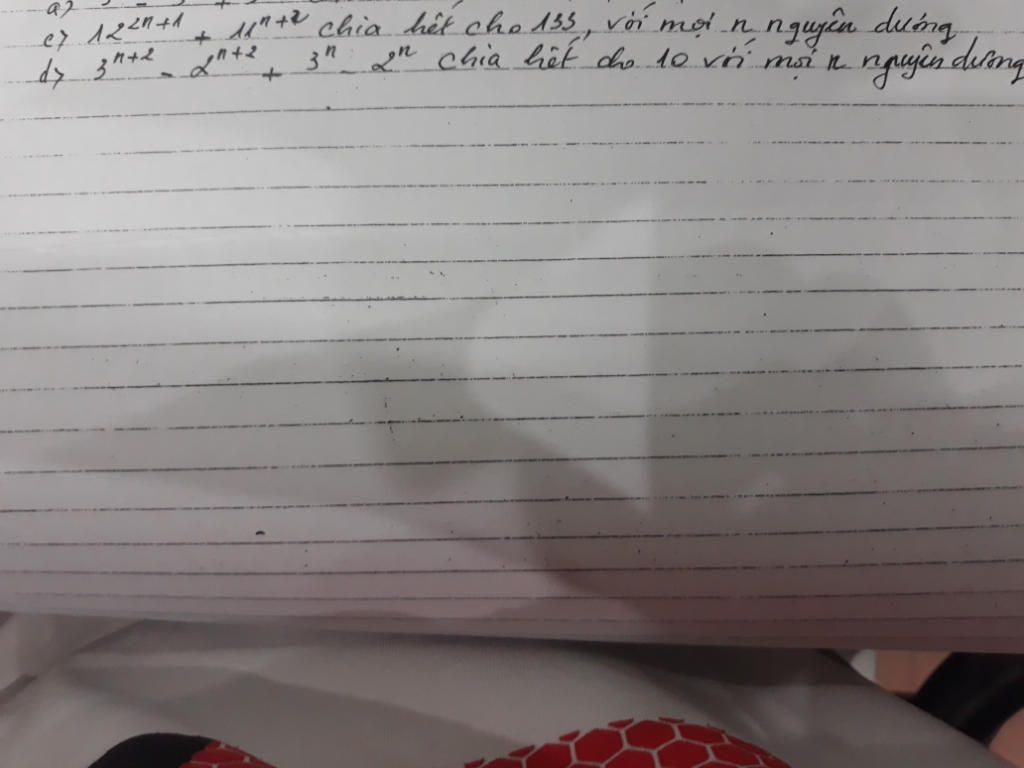 c) 12^{2n+1} + 11^{n+2} chia hết cho 133, với mọi n nguyên dương
d) 3^{n+2} - 2^{n+2} + 3^n - 2^n chia hết cho 10 với mọi n nguyên dương